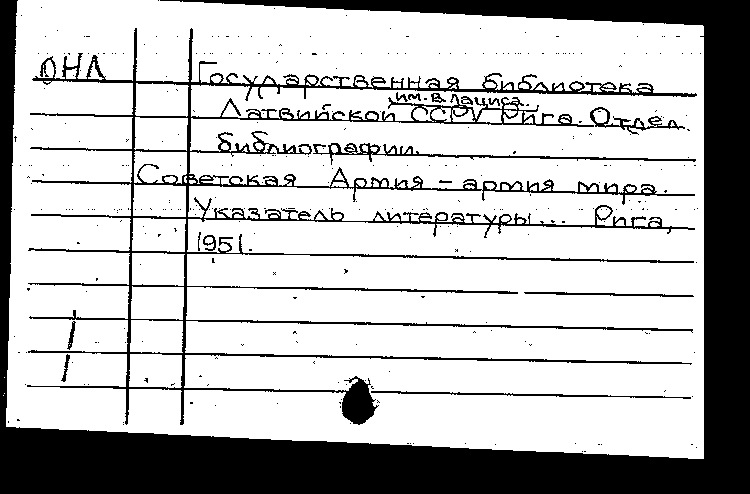 ОНЛ
Государственная библиотека
им. В. Лациса.
Латвийской ССР, Рига. Отдел
библиографии.
Советская Армия – армия мира.
Указатель литературы... Рига,
1951.